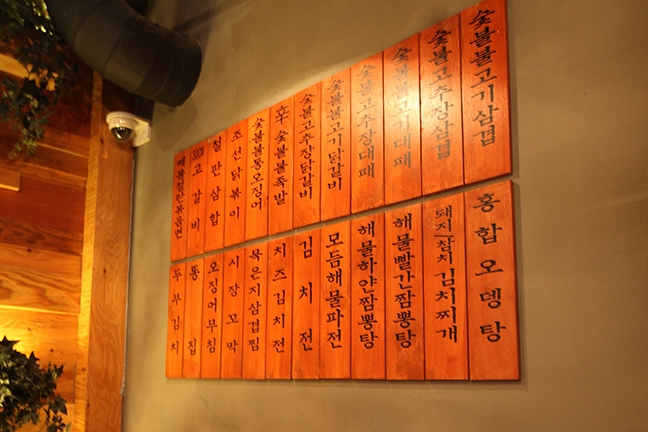 숯불불고기삼겹
숯불고추장삼겹
숯불불고기대패
숯불고추장대패
숯불불고기닭갈비
숯불고추장닭갈비
辛숯불불족발
숯불불통오징어
조선닭볶이
철판삼합
고갈비
해물철판볶음면
홍합오뎅탕
돼지/참치 김치찌개
해물빨간짬뽕탕
해물하얀짬뽕탕
모듬해물파전
김치전
치즈김치전
묵은지삼겹찜
시장꼬막
오징어무침
똥집
두부김치